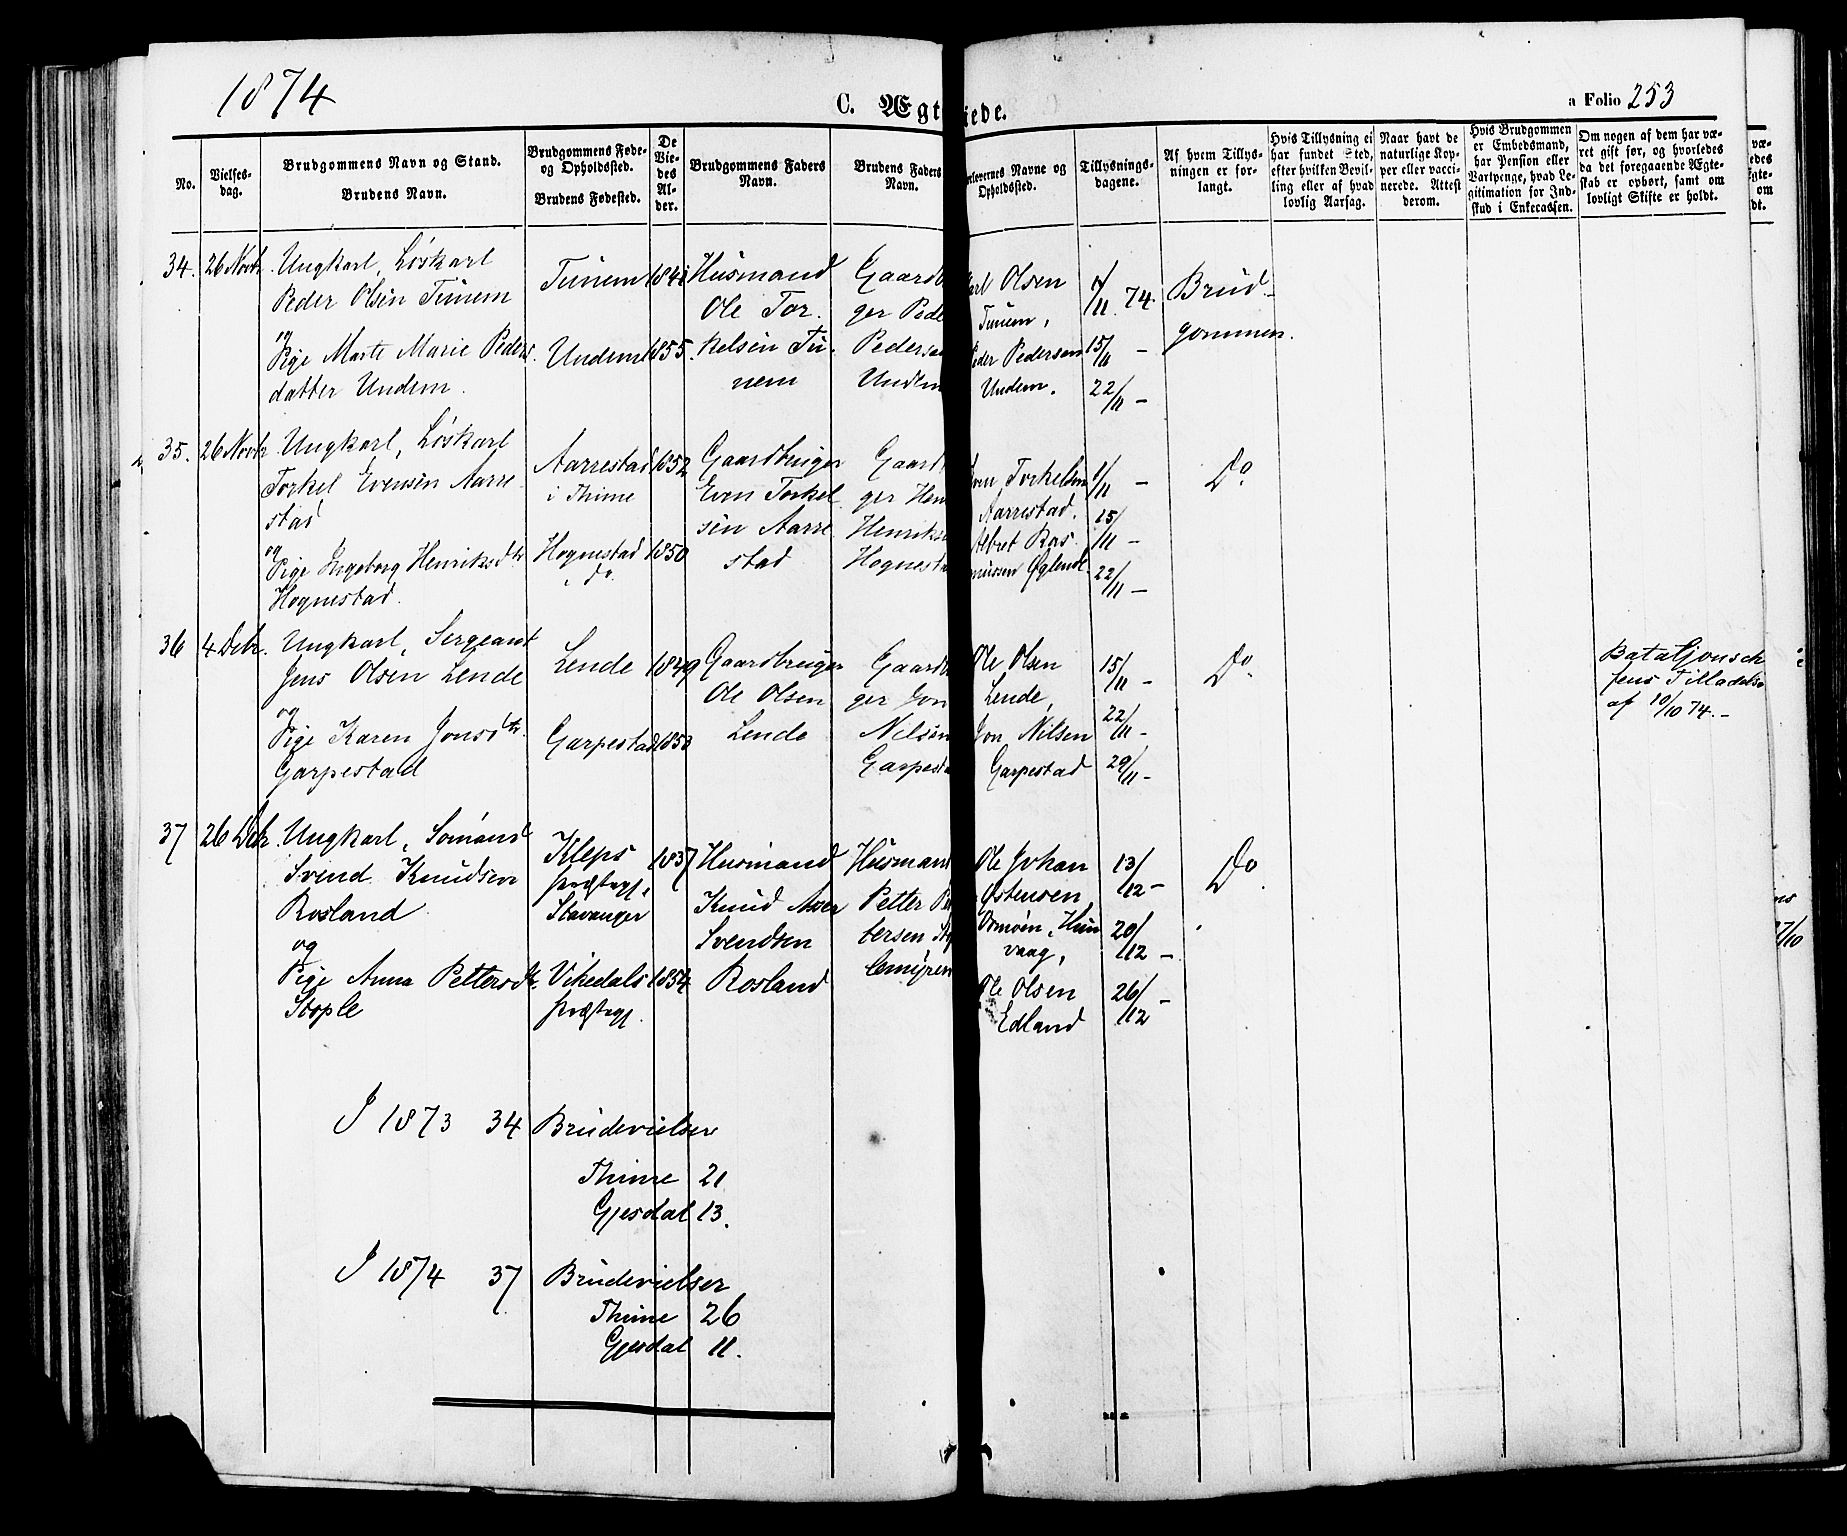 1874
C. Ægt iede.
a Folio 253
No.
Vielses-
dag.
Brudgommens Navn og Stand.
Brudens Navn.
Brudgommens Føde-
og Opholdssted.
Brudens Fødested.
De
Vie-
des
Al-
der.
Brudgommens Faders
Navn.
Brudens Faders
Navn.
orlovernes Navne og
Opholdssted.
Tillysnings-
dagene.
Af hvem Tillys-
ningen er for-
langt.
Hvis Tillysning ei
har fundet Sted,
efter hvilken Bevil-
ling eller af hvad
lovlig Aarsag.
Naar havt de
naturlige Kop-
per eller vacci-
nerede. Attest
derom.
Hvis Brudgommen
er Embedsmand,
har Pension eller
Vartpenge, hvad Le-
gitimation for Ind-
skud i Enkecassen.
Om nogen af dem har væ-
ret gift før, og hvorledes
da det foregaaende Ægte-
skab er ophørt, samt om
lovligt Skifte er holdt.
34.
26 Novbr
Ungkarl, Løskarl
Peder Olsen Tunem
og
Pige Marte Marie Peders
datter Undem.
Tunem
Undem
1841
1855.
Husmand
Ole Tor.
kelsen Tu-
nem
Gaardb
ger Pede
Pedersen
Undem
arl Olsen
Tunem,
Peder Pedersen
Undem.
1/11 74.
15/11 -
22/11 -
Brud-
gommen.
35.
26 Novbr
Ungkarl, Løskarl
Torkel Evensen Aarre
stad
og
Pige Ingeborg Henriksdtr
Hognestad.
Aarrestad
i Thime
Hognestad
i do.
1852
1850
Gaardbruger
Even Torkel
sen Aarre
stad
Gaard
ger Hen
Henrikse
Hognesta
Torkelsen
Aarrestad.
Albret Ras.
mussen Øglend.
1/11 -
15/11 -
22/11 -
Do
36
4 Decbr.
Ungkarl, Sergeant
Jens Olsen Lende
og
Pige Karen Jonsdtr.
Garpestad
Lende
Garpestad
1849
1853
Gaardbruger
Ole Olsen
Lende
Gaardb
ger Jon
Nilsen
Garpesta
Ole Olsen
Lende,
Jon Nilsen
Garpestad
15/11 -
22/11 -
29/11 -
Do
Bataljonsch
fens Tilladelse
af 10/10 74. -
37
26 Decbr
Ungkarl, Sømand
Svend Knudsen
Rosland
og
Pige Anna Pettersdtr.
Stople
Kleps
præstegj.
Stavanger
Vikedals
præstegj.
1837
1854
Husmand
Knud Aser
Svendsen
Rosland
Husmand
Petter Pe
tersen Sto
lemyren
Ole Johan
Østensen
Hun
vaag,
Ole Olsen
Edland
13/12 -
20/12 -
26/12 -
Do
I 1873 34 Brudevielser
Thime 21
Gjesdal 13.
I 1874 37 Brudevielser
Thime 26
Gjesdal 11.
væ-
ledes
Ægte-
om
dt.
27/10